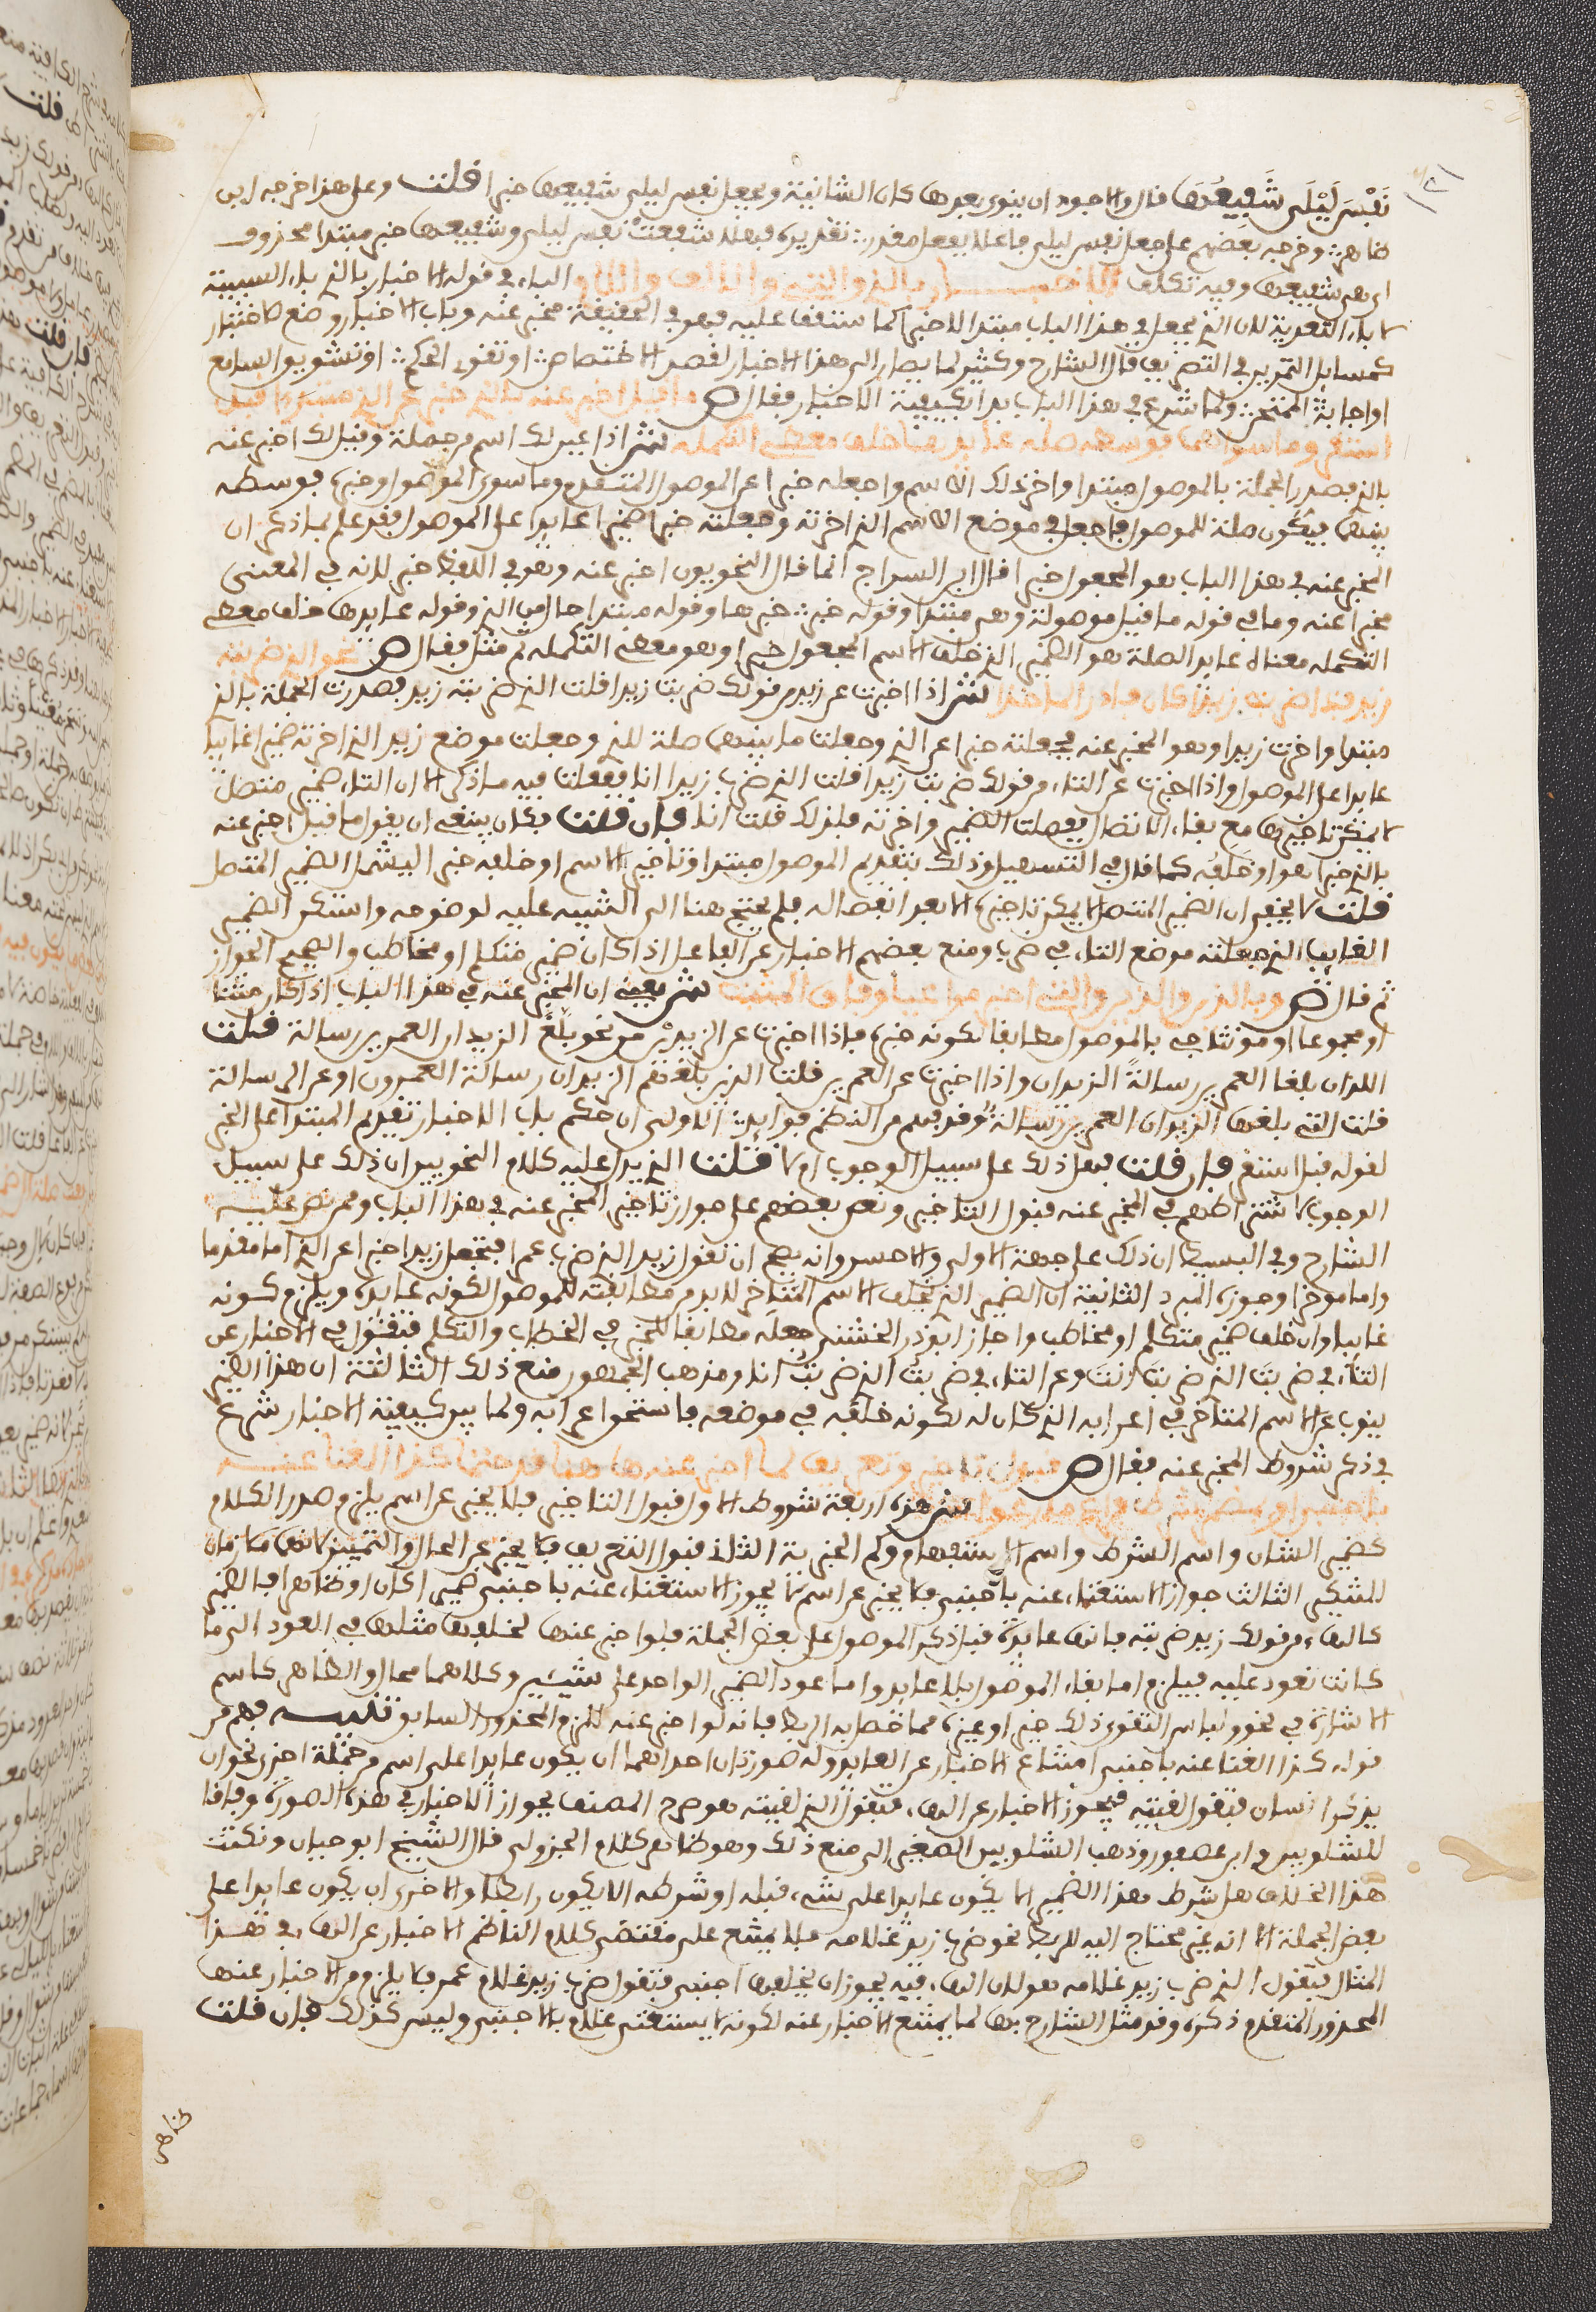 نفس ليلى شفيعها قال والاجود ان ينوى بعدها كان الشانية ويجعل نفس ليلى شفيعها خبرا قلت وعلى هذا خرجه ابن
وخرجه بعضهم على جعل نفس ليلى فاعلا بفعل مقدر تقديره فهلا شفعت نفس ليلى وشفيعها خبر مبتدا محذوف
اى هى شفيعها وفيه تكلف الاخبار بالذى والتى والالف واللام الباء فى قوله الاخبار بالذى باء السببية
لا باء التعدية لان الذى يجعل فى هذا الباب مبتدا لا خبرا كما ستقف عليه فهو فى الحقيقة مخبر عنه وباب الاخبار وضع للاختبار
كمسايل التمرين فى التصريف قال الشارح وكثيرا ما يصار الى هذا الاخبار لقصد الاختصاص او تقوى الحكم او تشويق السامع
او اجابة الممتحن ولما شرع فى هذا الباب بدا بكيفية الاخبار فقال ص ما قيل اخبر عنه بالذى خبر عن الذى مبتدا قبل
استقر وما سواهما فوسطه صله عايدها خلف معطى التكمله ش اذا عين لك اسم من جملة وقيل لك اخبر عنه
بالذى فصدر الجملة بالموصول مبتدا واخر ذلك الاسم واجعله خبرا عن الموصول المتقدم وما سوى الموصول وخبره فوسطه
بينهما فيكون صلة للموصول واجعل فى موضع الاسم الذى اخرته وجعلته خبرا ضميرا عايدا على الموصول فقد علم بما ذكر ان
المخبر عنه فى هذا الباب هو المجعول خبرا قال ابن السراج انما قال النحويون اخبر عنه وهو فى اللفظ خبر لانه فى المعنى
مخبر عنه وما فى قوله ما قيل موصولة وهى مبتدا وقوله خبر خبرها وقوله مبتدا حال من الذى وقوله عايدها خلف معطى
التكمله معناه عايد الصلة هو الضمير الذى خلف الاسم المجعول خبرا وهو معطى التكمله ثم مثل فقال ص نحو الذى ضربته
زيد فذا ضربت زيدا كان فادر الماخذا ش اذا اخبرت عن زيد من قولك ضربت زيدا قلت الذى ضربته زيد فصدرت الجملة بالذى
مبتدا واخرت زيدا وهو المخبر عنه فجعلته خبرا عن الذى وجعلت ما بينهما صلة للذى وجعلت موضع زيد الذى اخرته ضميرا غايبا
عايدا على الموصول واذا اخبرت عن التاء من قولك ضربت زيدا قلت الذى ضرب زيدا انا ففعلت فيه ما ذكر الا ان التاء ضمير متصل
لا يمكن تاخيرها مع بقاء الاتصال ففصلت الضمير واخرته فلذلك قلت انا فان قلت فكان ينبغى ان يقول ما قيل اخبر عنه
بالذى خبرا هو او خلفه كما قال فى التسهيل وذلك بتقديم الموصول مبتدا وتاخير الاسم او خلفه خبرا ليشمل الضمير المتصل
قلت لا يخفى ان الضمير المتصل لا يمكن تاخيره الا بعد انفصاله فلم يحتج هنا الى التنبيه عليه لوضوحه واستكن الضمير
الغايب الذى جعلته موضع التاء فى ضرب ومنع بعضهم الاخبار عن الفاعل اذا كان ضمير متكلم او مخاطب والصحيح الجواز
ثم قال ص وباللذين والذين والتى اخبر مراعيا وفاق المثبت ش يعنى ان المخبر عنه فى هذا الباب اذا كان مثنا
او مجموعا او مؤنثا جىء بالموصول مطابقا لكونه خبره فاذا اخبرت عن الزيدين من نحو بلغ الزيدان العمرين رسالة قلت
اللذان بلغا العمرين رسالة الزيدان واذا اخبرت عن العمرين قلت الذين بلغهم الزيدان رسالة العمرون او عن الرسالة
قلت التى بلغها الزيدان العمرين رسالة وقد فهم من النظم فوايد الاولى ان حكم باب الاخبار تقديم المبتدا على الخبر
لقوله قبل استقر فان قلت فهل ذلك على سبيل الوجوب ام لا قلت الذى يدل عليه كلام النحويين ان ذلك على سبيل
الوجوب لاشتراطهم فى المخبر عنه قبول التاخير ونص بعضهم على جواز تاخير المخبر عنه فى هذا الباب وممن نص عليه
الشارح وفى البسيط ان ذلك على جهة الاولى والاحسن وانه يصح ان تقول زيد الذى ضرب عمرا فتجعل زيدا خبرا عن الذى اما مقدما
واما موخرا وجوزه المبرد الثانية ان الضمير الذى يخلف الاسم المتاخر لا بد من مطابقته للموصول لكونه عايده ويلزم كونه
غايبا وان خلف ضمير متكلم او مخاطب واجاز ابو ذر الخشنى جعله مطابقا للخبر فى الخطاب والتكلم فيقول فى الاخبار عن
التاء فى ضربت الذى ضربت انت وعن التاء فى ضربت الذى ضربت انا ومذهب الجمهور منع ذلك الثالثة ان هذا الضمير
ينوب عن الاسم المتاخر فى اعرابه الذى كان له لكونه خلفه فى موضعه فاستحق اعرابه ولما بين كيفية الاخبار شرع
فى ذكر شروط المخبر عنه فقال ص قبول تاخير وتعريف لما اخبر عنه هاهنا قد حتما كذا الغنا عنه
باجنبى او بمضمر شرط فراع ما رعوا ش هذه اربعة شروط الاول قبول التاخير فلا يخبر عن اسم يلزم صدر الكلام
كضمير الشان واسم الشرط واسم الاستفهام وكم الخبرية الثانى قبول التعريف فلا يخبر عن الحال والتمييز لانهما ملازمان
للتنكير الثالث جواز الاستغناء عنه باجنبى فلا يخبر عن اسم لا يجوز الاستغناء عنه باجنبى ضميرا كان او ظاهرا فالضمير
كالهاء من قولك زيد ضربته فانها عايدة قبل ذكر الموصول على بعض الجملة فلو اخبر عنها لخلفها مثلها فى العود الى ما
كانت تعود عليه فيلزم اما بقاء الموصول بلا عايد واما عود الضمير الواحد على شيئين وكلاهما محال والظاهر كاسم
الاشارة فى نحو ولباس التقوى ذلك خير او غيره مما حصل به الربط فانه لو اخبر عنه للزم المحذور السابق تنبيه فهم من
قوله كذا الغنا عنه باجنبى امتناع الاخبار عن العايد وله صورتان احداهما ان يكون عايدا على اسم من جملة اخرى نحو ان
يذكر انسان فيقول لقيته فيجوز الاخبار عن الهاء فتقول الذى لقيته هو صرح المصنف بجواز الاخبار فى هذه الصورة وفاقا
للشلوبين وابن عصفور وذهب الشلوبين الصغير الى منع ذلك وهو ظاهر كلام الجزولى قال الشيخ ابو حيان ونكتت
هذا الخلاف هل شرط هذا الضمير الا يكون عايدا على شىء قبله او شرطه الا يكون رابطا والاخرى ان يكون عايدا على
بعض الجملة الا انه غير محتاج اليه للربط نحو ضرب زيد غلامه فلا يمتنع على مقتضى كلام الناظم الاخبار عن الهاء فى هذا
المثال فيقول الذى ضرب زيد غلامه هو لان الهاء فيه يجوز ان يخلفها اجنبى فتقول ضرب زيد غلام عمرو فلا يلزم من الاخبار عنها
المحذور المتقدم ذكره وقد مثل الشارح بها لما يمتنع الاخبار عنه لكونه لا يستغنى عنه بالاجنبى وليس كذلك فان قلت